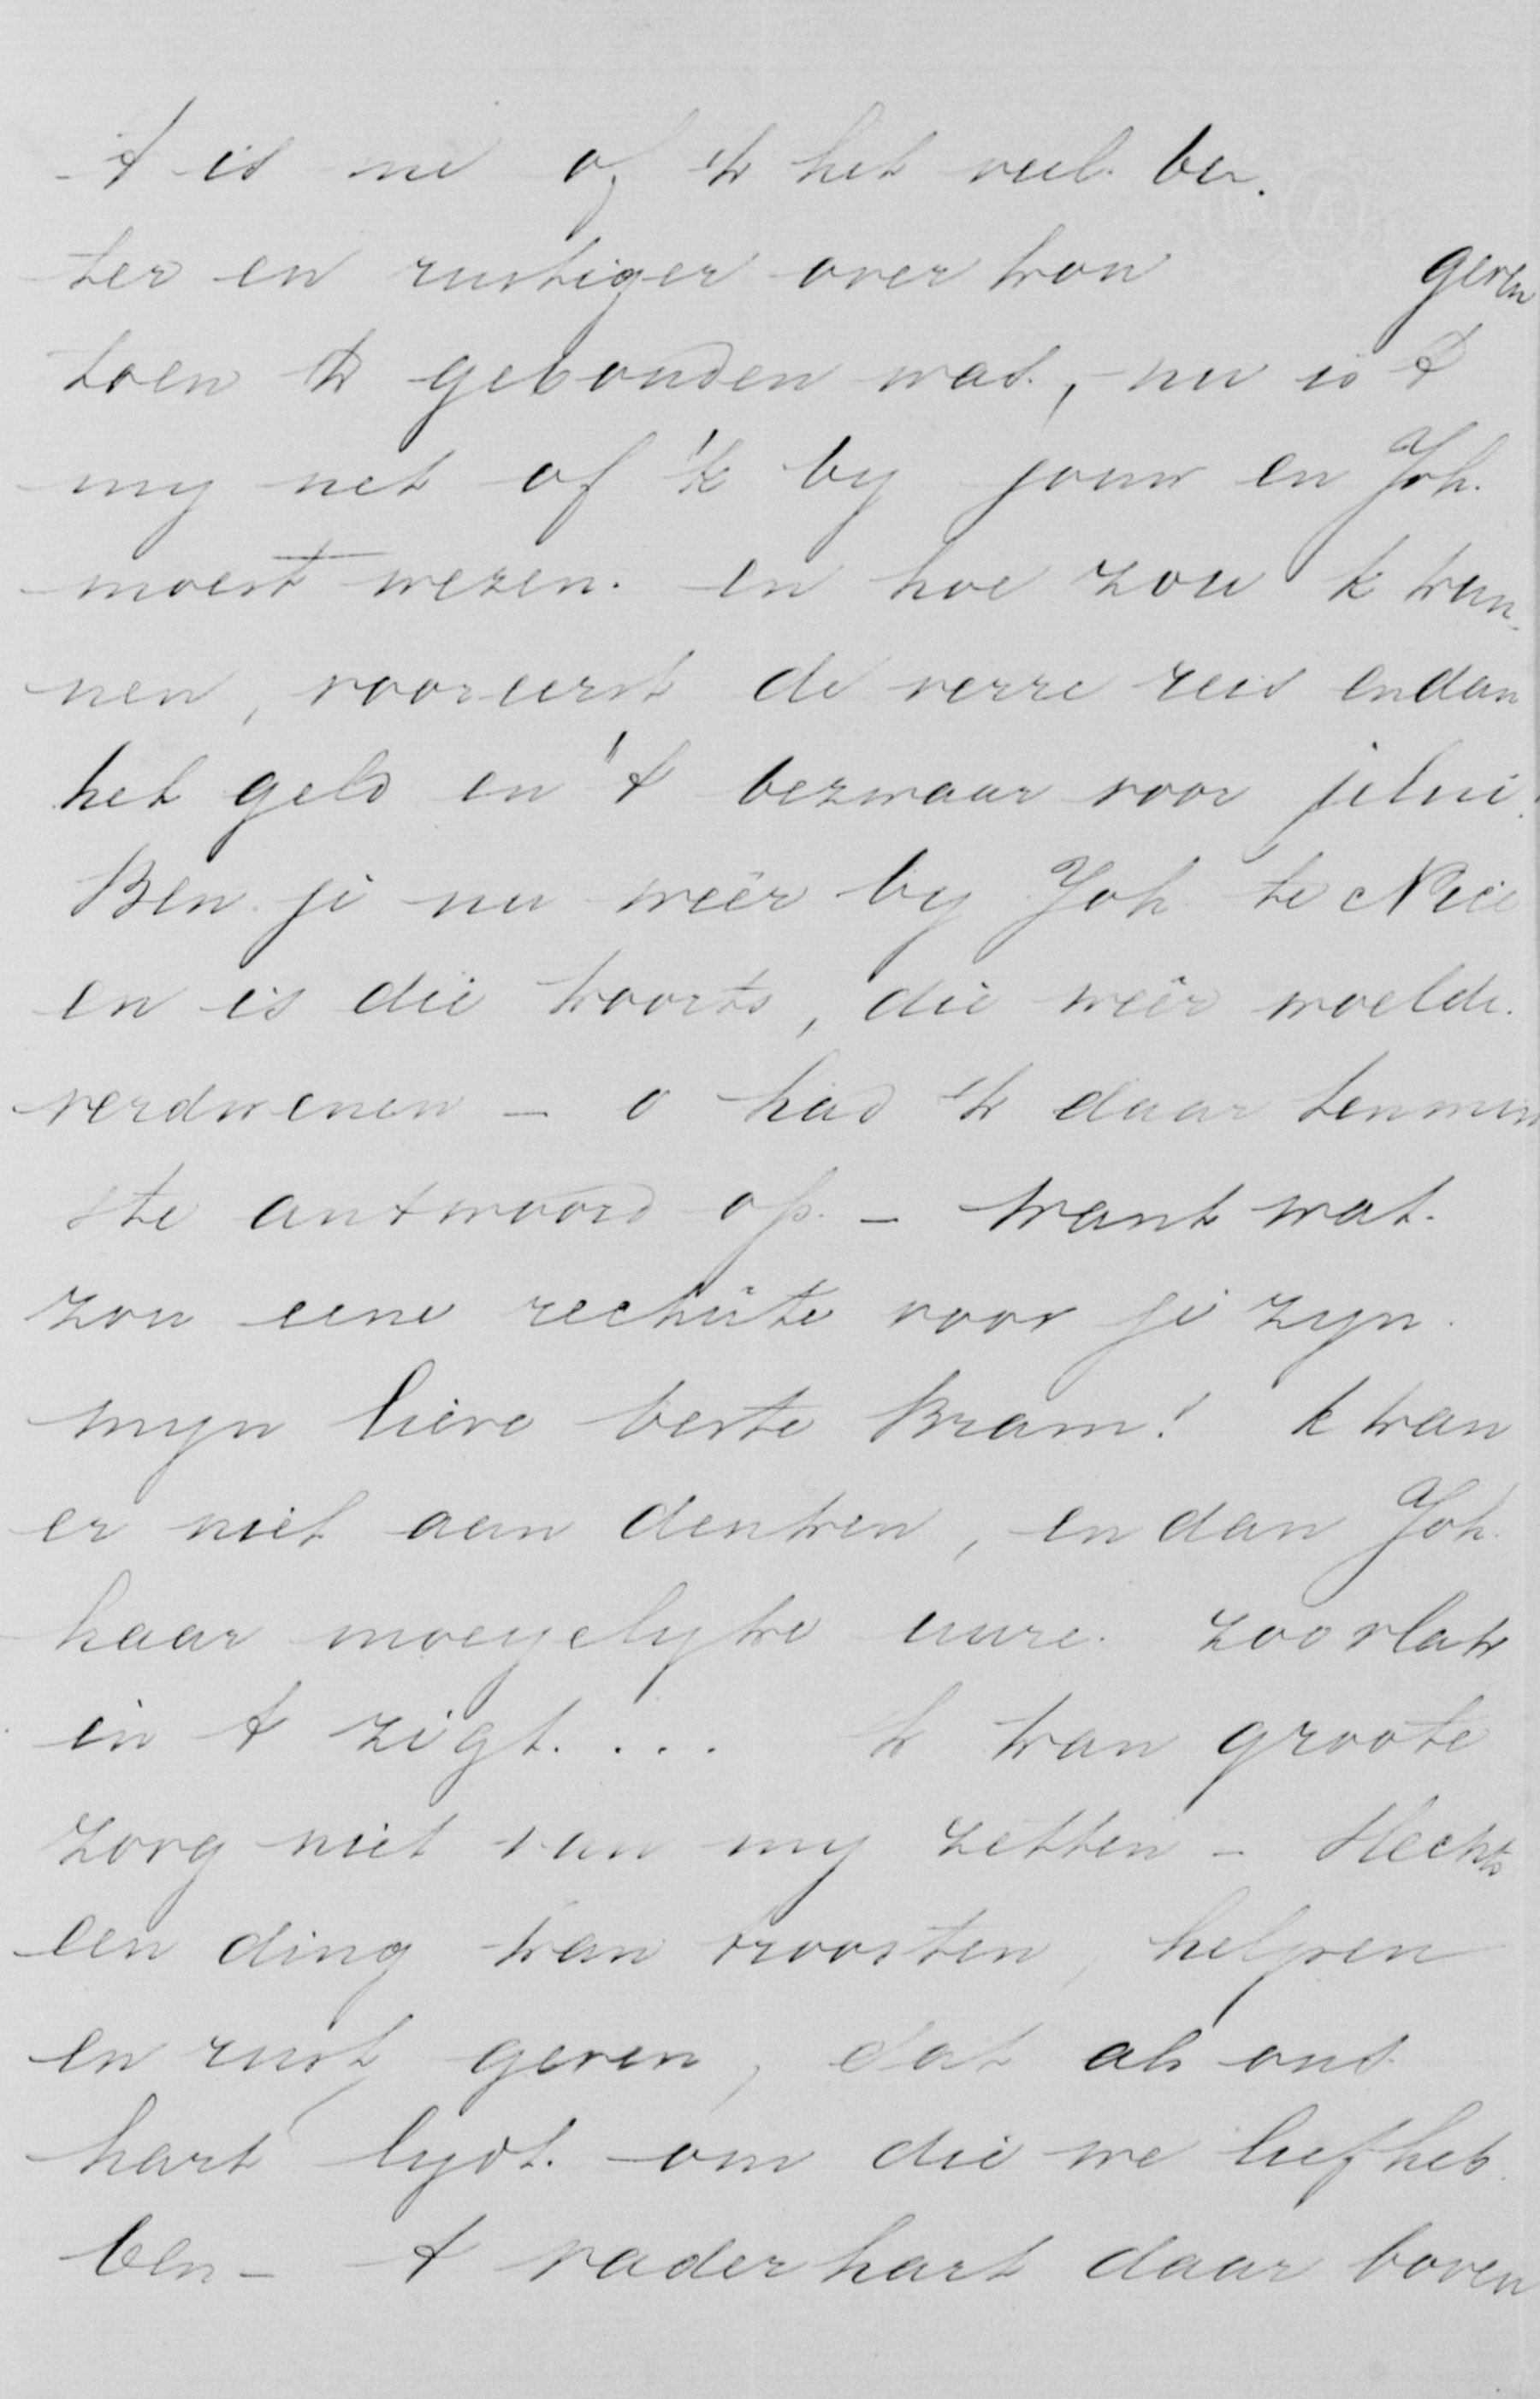 't is me of 'k het veel be-
ter en rustiger over kon geven
toen 'k gebonden was, nu is 't
my net of 'k by jouw en Joh.
moest wezen. en hoe zou k kun-
nen, vooreerst de verre reis endan
het geld en 't bezwaar voor jelui.
Ben je nu weêr by Joh. te Nice
en is die koorts, die weêr woelde.
verdwenen – o had 'k daar tenmin
ste antwoord op. – want wat.
zou eene rechûte voor je zyn.
myn lieve beste Bram! k kan
er niet aan denken, en dan Joh.
haar moeyelyke uure. zoo vlak
in t zigt. ... k kan groote
zorg niet van my zetten – Slechts
een ding kan troosten, helpen
en rust geven, dat als ons
hart lydt. om die we liefheb
ben – t vader hart daar boven